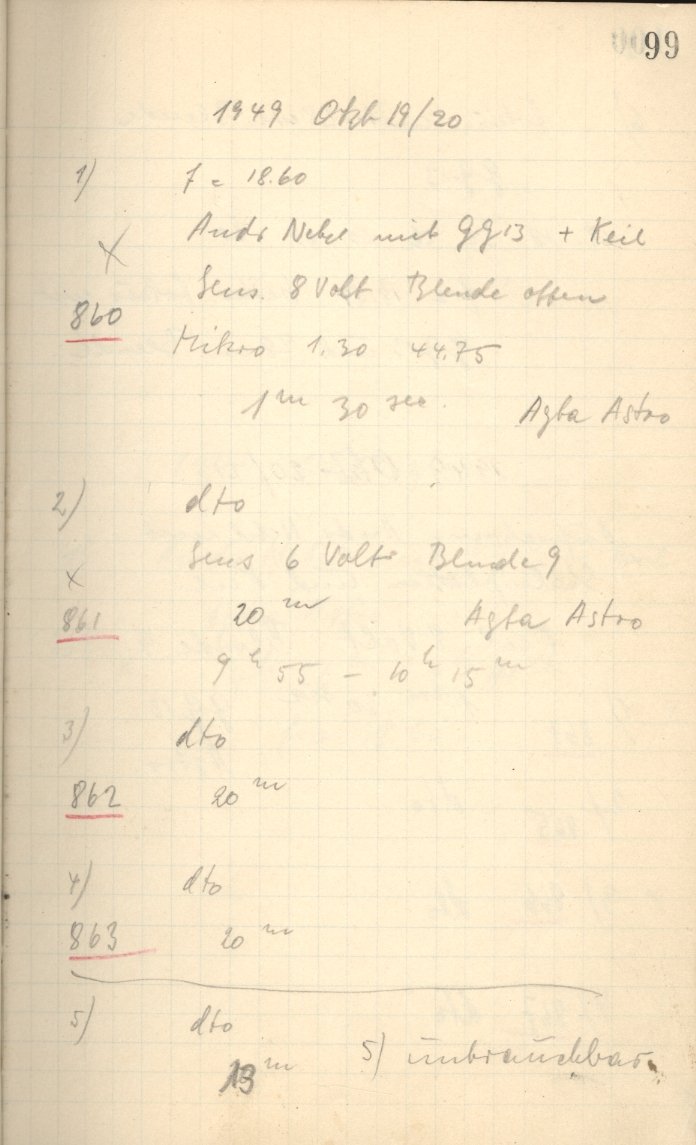 99
1949 Okt 19/20
1) f = 18.60
Andr Nebel mit GG13 + Keil
X
Sens. 8 Volt Blende offen
860
Mikro 1.30 44.75
1 m 30 sec. Agfa Astro
2) dto
Sens 6 Volt Blende 9
x
861 20 m Agfa Astro
9 h 55 – 10 h 15 m
3) dto
862 20 m
4) dto
863 20 m
5) dto
13 m 5) unbrauchbar